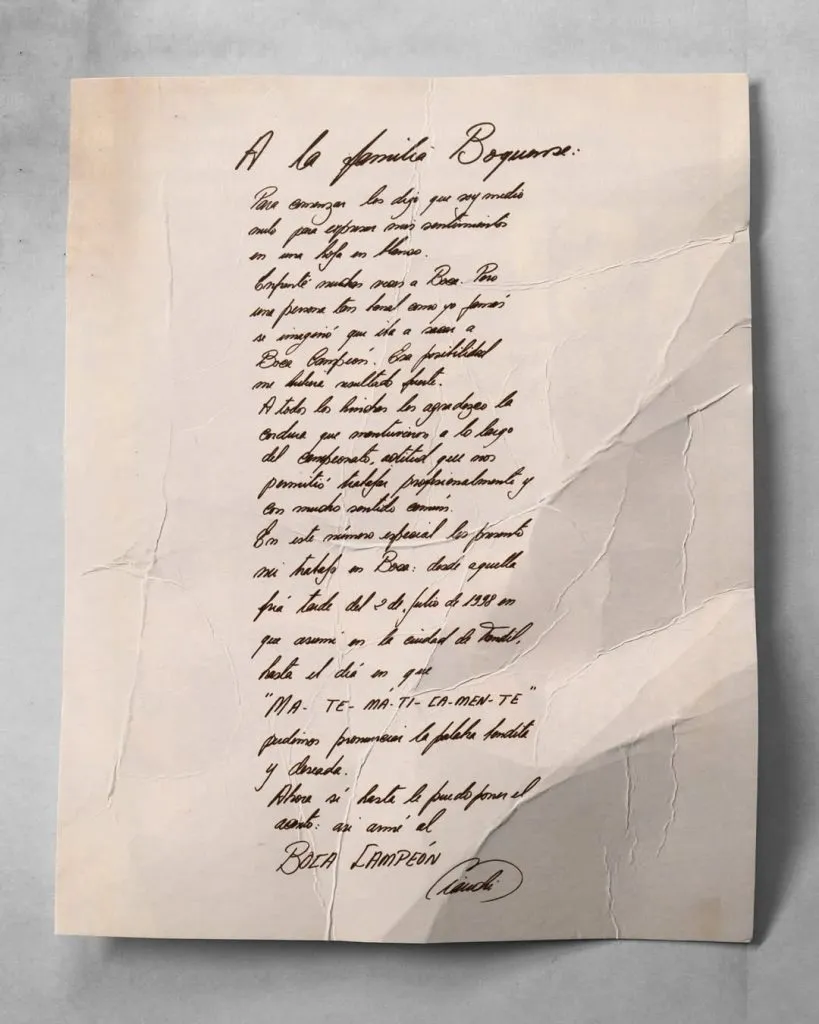 A la familia Boquense:
Para comenzar les digo que soy medio
nulo para expresar mis sentimientos
en una hoja en blanco.
Enfrenté muchas veces a Boca. Pero
una persona tan banal como yo jamás
se imaginó que iba a sacar a
Boca Campeón. Esa posibilidad
me hubiera resultado fuerte.
A todos los hinchas les agradezco la
cordura que mantuvieron a lo largo
del campeonato, actitud que nos
permitió trabajar profesionalmente y
con mucho sentido común.
En este número especial les presento
mi trabajo en Boca: desde aquella
fría tarde del 2 de Julio de 1998 en
que asumí en la ciudad de Tandil,
hasta el día en que
"MA- TE- MÁ-TI-CA-MEN-TE"
pudimos pronunciar la palabra bendita
y deseada.
Ahora sí hasta le puedo poner el
acento: así armé al
BOCA CAMPEÓN